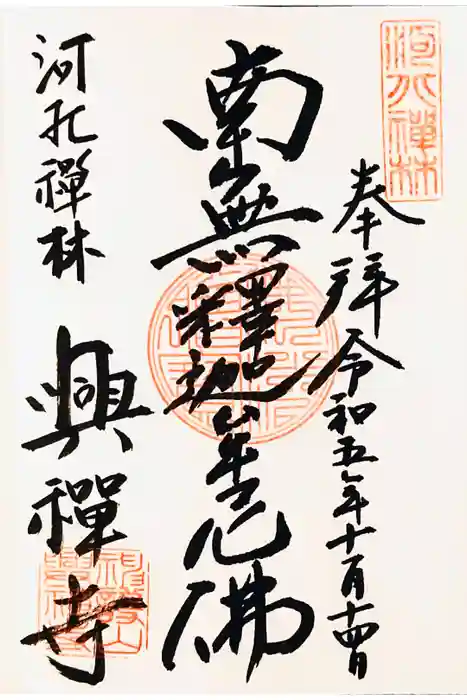 河北禪林
奉拜 令和五年十一月十四日
南無釋迦牟尼佛
河北禪林
興禪寺